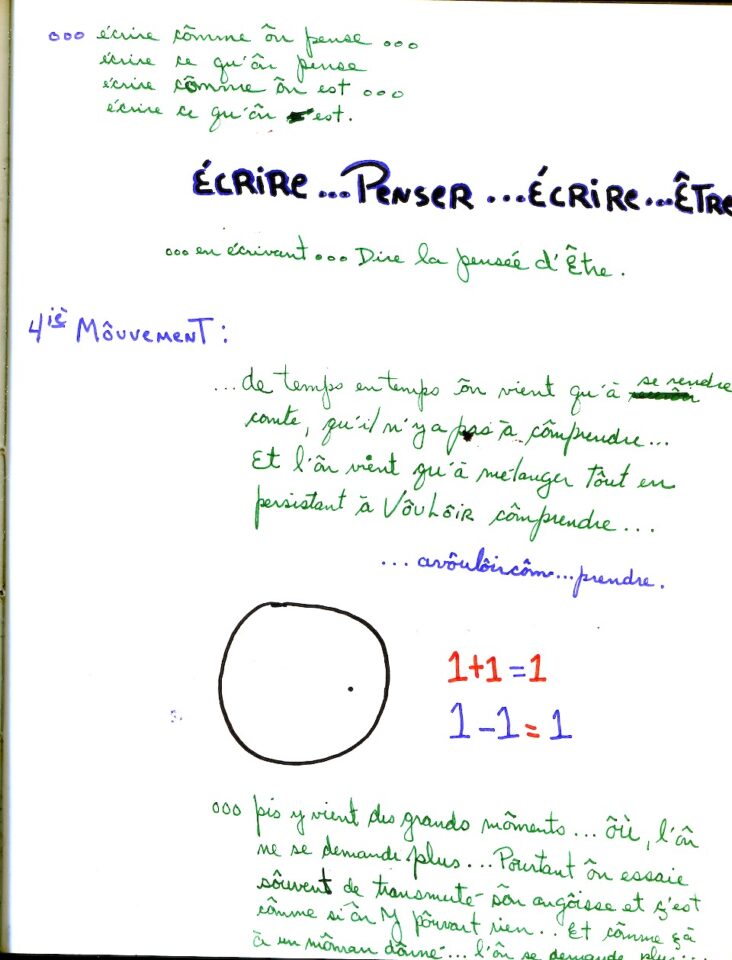 ooo écrire cômme ôn pense ooo
écrire ce qu'ôn pense
écrire cômme ôn est ooo
écrire ce qu'ôn est.
ÉCRIRE...PENSER...ÉCRIRE...ÊTRE
ooo en écrivant ooo Dire la pensée d'Être.
4iè MÔUVEMENT :
...de temps en temps ôn vient qu'à se rendre
conte, qu'il n'y a pas à cômprendre...
Et l'ôn vient qu'à mélanger tôut en
persistant à VÔULÔIR cômprendre...
...avôulôircôm...prendre.
1+1=1
1-1=1
ooo pis y vient des grands môments... ôù, l'ôn
ne se demande plus... Pourtant ôn essaie
sôuvent de transmuté sôn angôisse et ç'est
cômme si ôn y pôuvait rien.. Et cômme çà
à un môman dônné... l'ôn se demande plus...